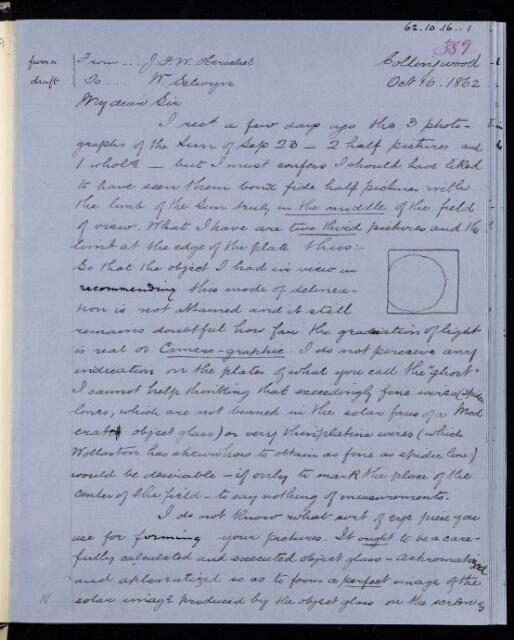 62.10.16..1
389
from a draft
From ... J F.W. Herschel
Collingwood
To ... W. Selwyn
Oct 16. 1862
My dear Sir
I rec'd a few days ago the 3 photo-
graphs of the Sun of Sep 23 — 2 half pictures and
1 whole — but I must confess I should have liked
to have seen them bonâ fide half pictures with
the limb of the Sun truly in the middle of the field
of view. What I have are two third pictures and the
limb at the edge of the plate thus:-
So that the object I had in view in
recommending this mode of delinea-
tion is not attained and it still
remains doubtful how far the graduation of light
is real or Camera-graphic. I do not perceive any
indication on the plates of what you call the "ghost"
I cannot help thinking that exceedingly fine wires (spider
lines, which are not burned in the solar focus of a Mod
erate object glass) or very thin platina wires (which
Wollaston has shewn how to obtain as fine as spider lines)
would be desirable – if only to mark the place of the
center of the field – to say nothing of measurements.
I do not know what sort of eye piece you
use for forming your pictures. It ought to be a care-
fully calculated and executed object glass – achromatized
and aplanatized so as to form a perfect image of the
solar image produced by the object glass on the screen